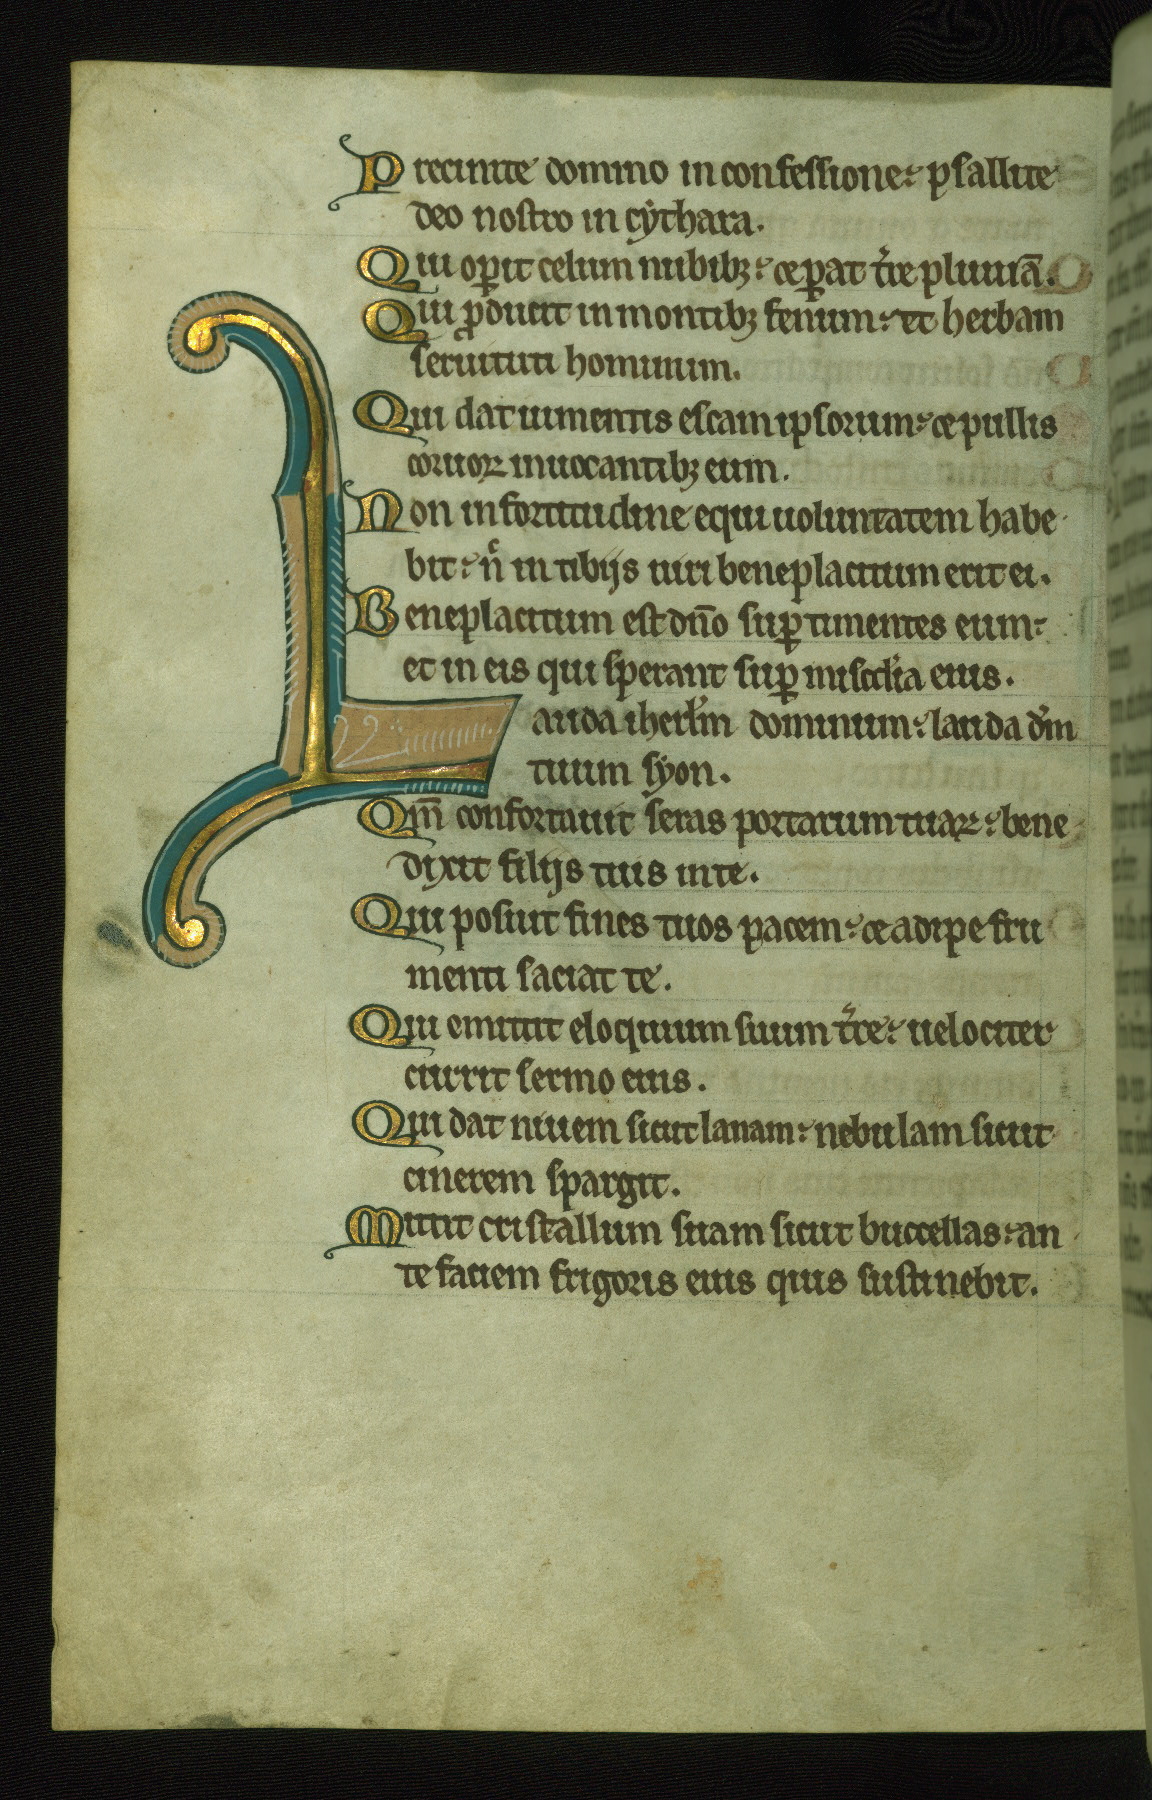 Precinite domino in confessione: psallite
deo nostro in cythara.
Qui operit celum nubibꝫ: ⁊ parat t're pluuiā.
Qui ꝓducit in montibꝫ fenum: et herbam
seruituti hominum.
Qui dat iumentis escam ipsorum: ⁊ pullis
coruoꝝ inuocantibꝫ eum.
Non in fortitudine equi uoluntatem habe
bit: n̄ in tibijs uiri beneplacitum erit ei.
Beneplacitum est dn̄o suꝑ timentes eum:
et in eis qui sperant suꝑ misc̄dia eius.
Lauda iherlm̄ dominum: lauda dm̄
tuum syon.
Qm̄ confortauit seras portarum tuaꝝ: bene
dixit filijs tuis in te.
Qui posuit fines tuos pacem: ⁊ adipe fru
menti saciat te.
Qui emittit eloquium suum t're: uelociter
currit sermo eius.
Qui dat niuem sicut lanam: nebulam sicut
cinerem spargit.
Mittit cristallum suam sicut buccellas: an
te faciem frigoris eius quis sustinebit.